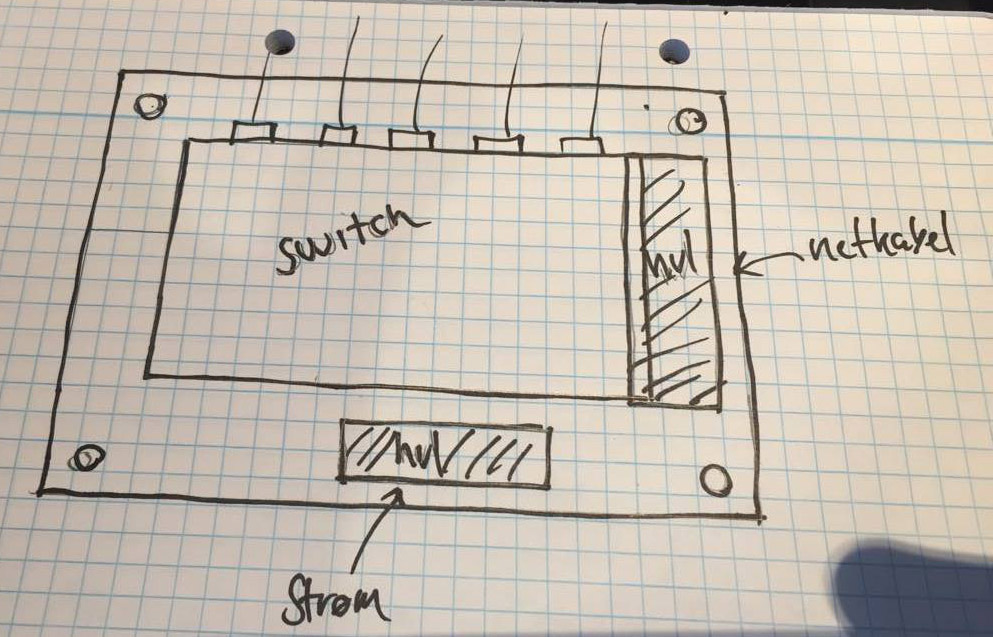 switch
hul
netkabel
hul
Strøm